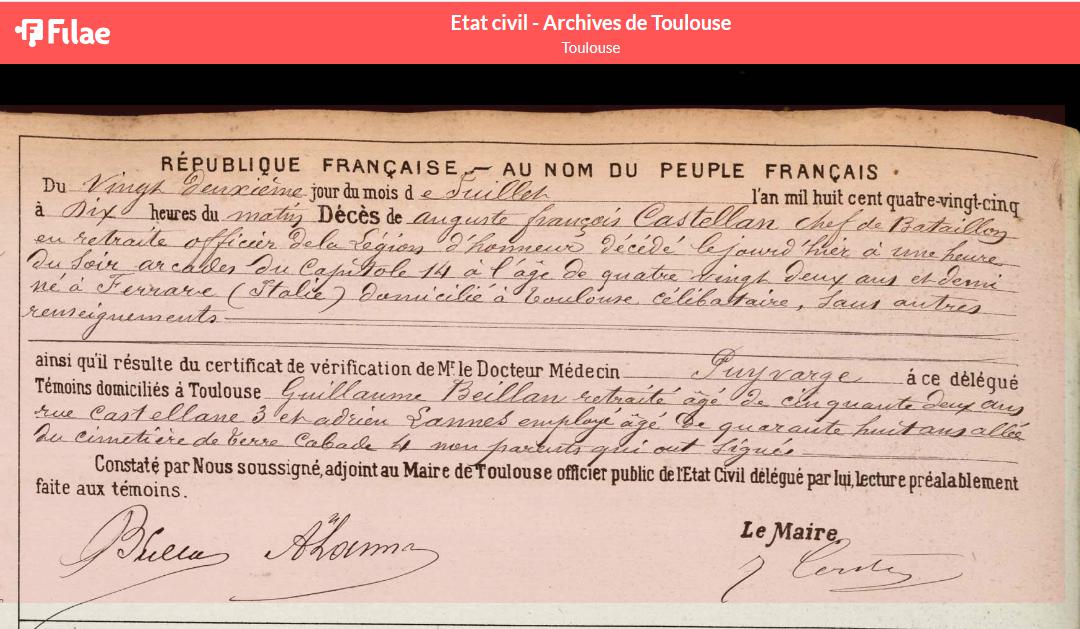 Filae
Etat civil - Archives de Toulouse
Toulouse
RÉPUBLIQUE FRANÇAISE — AU NOM DU PEUPLE FRANÇAIS
Du Vingt Deuxième jour du mois de Juillet l'an mil huit cent quatre-vingt-cinq
à Dix heures du matin Décès de auguste françois Castellan chef de Bataillon
en retraite officier dela Légion d'honneur décédé le jourd'hier à une heure
du Soir arcades du Capitole 14 à l'âge de quatre vingt deux ans et demi
né à Ferrare (Italie) domicilié à Toulouse célibataire, Sans autres
renseignements
ainsi qu'il résulte du certificat de vérification de Mr. le Docteur Médecin Puyvarge à ce délégué
Témoins domiciliés à Toulouse Guillaume Beillan retraité âgé de cinquante deux ans
rue Castellane 3 et adrien Lannes employé âgé de quarante huit ans allée
du cimetière de Terre Cabade 4 non parents qui ont signés
Constaté par Nous soussigné, adjoint au Maire de Toulouse officier public de l'Etat Civil délégué par lui, lecture préalablement
faite aux témoins.
Le Maire,